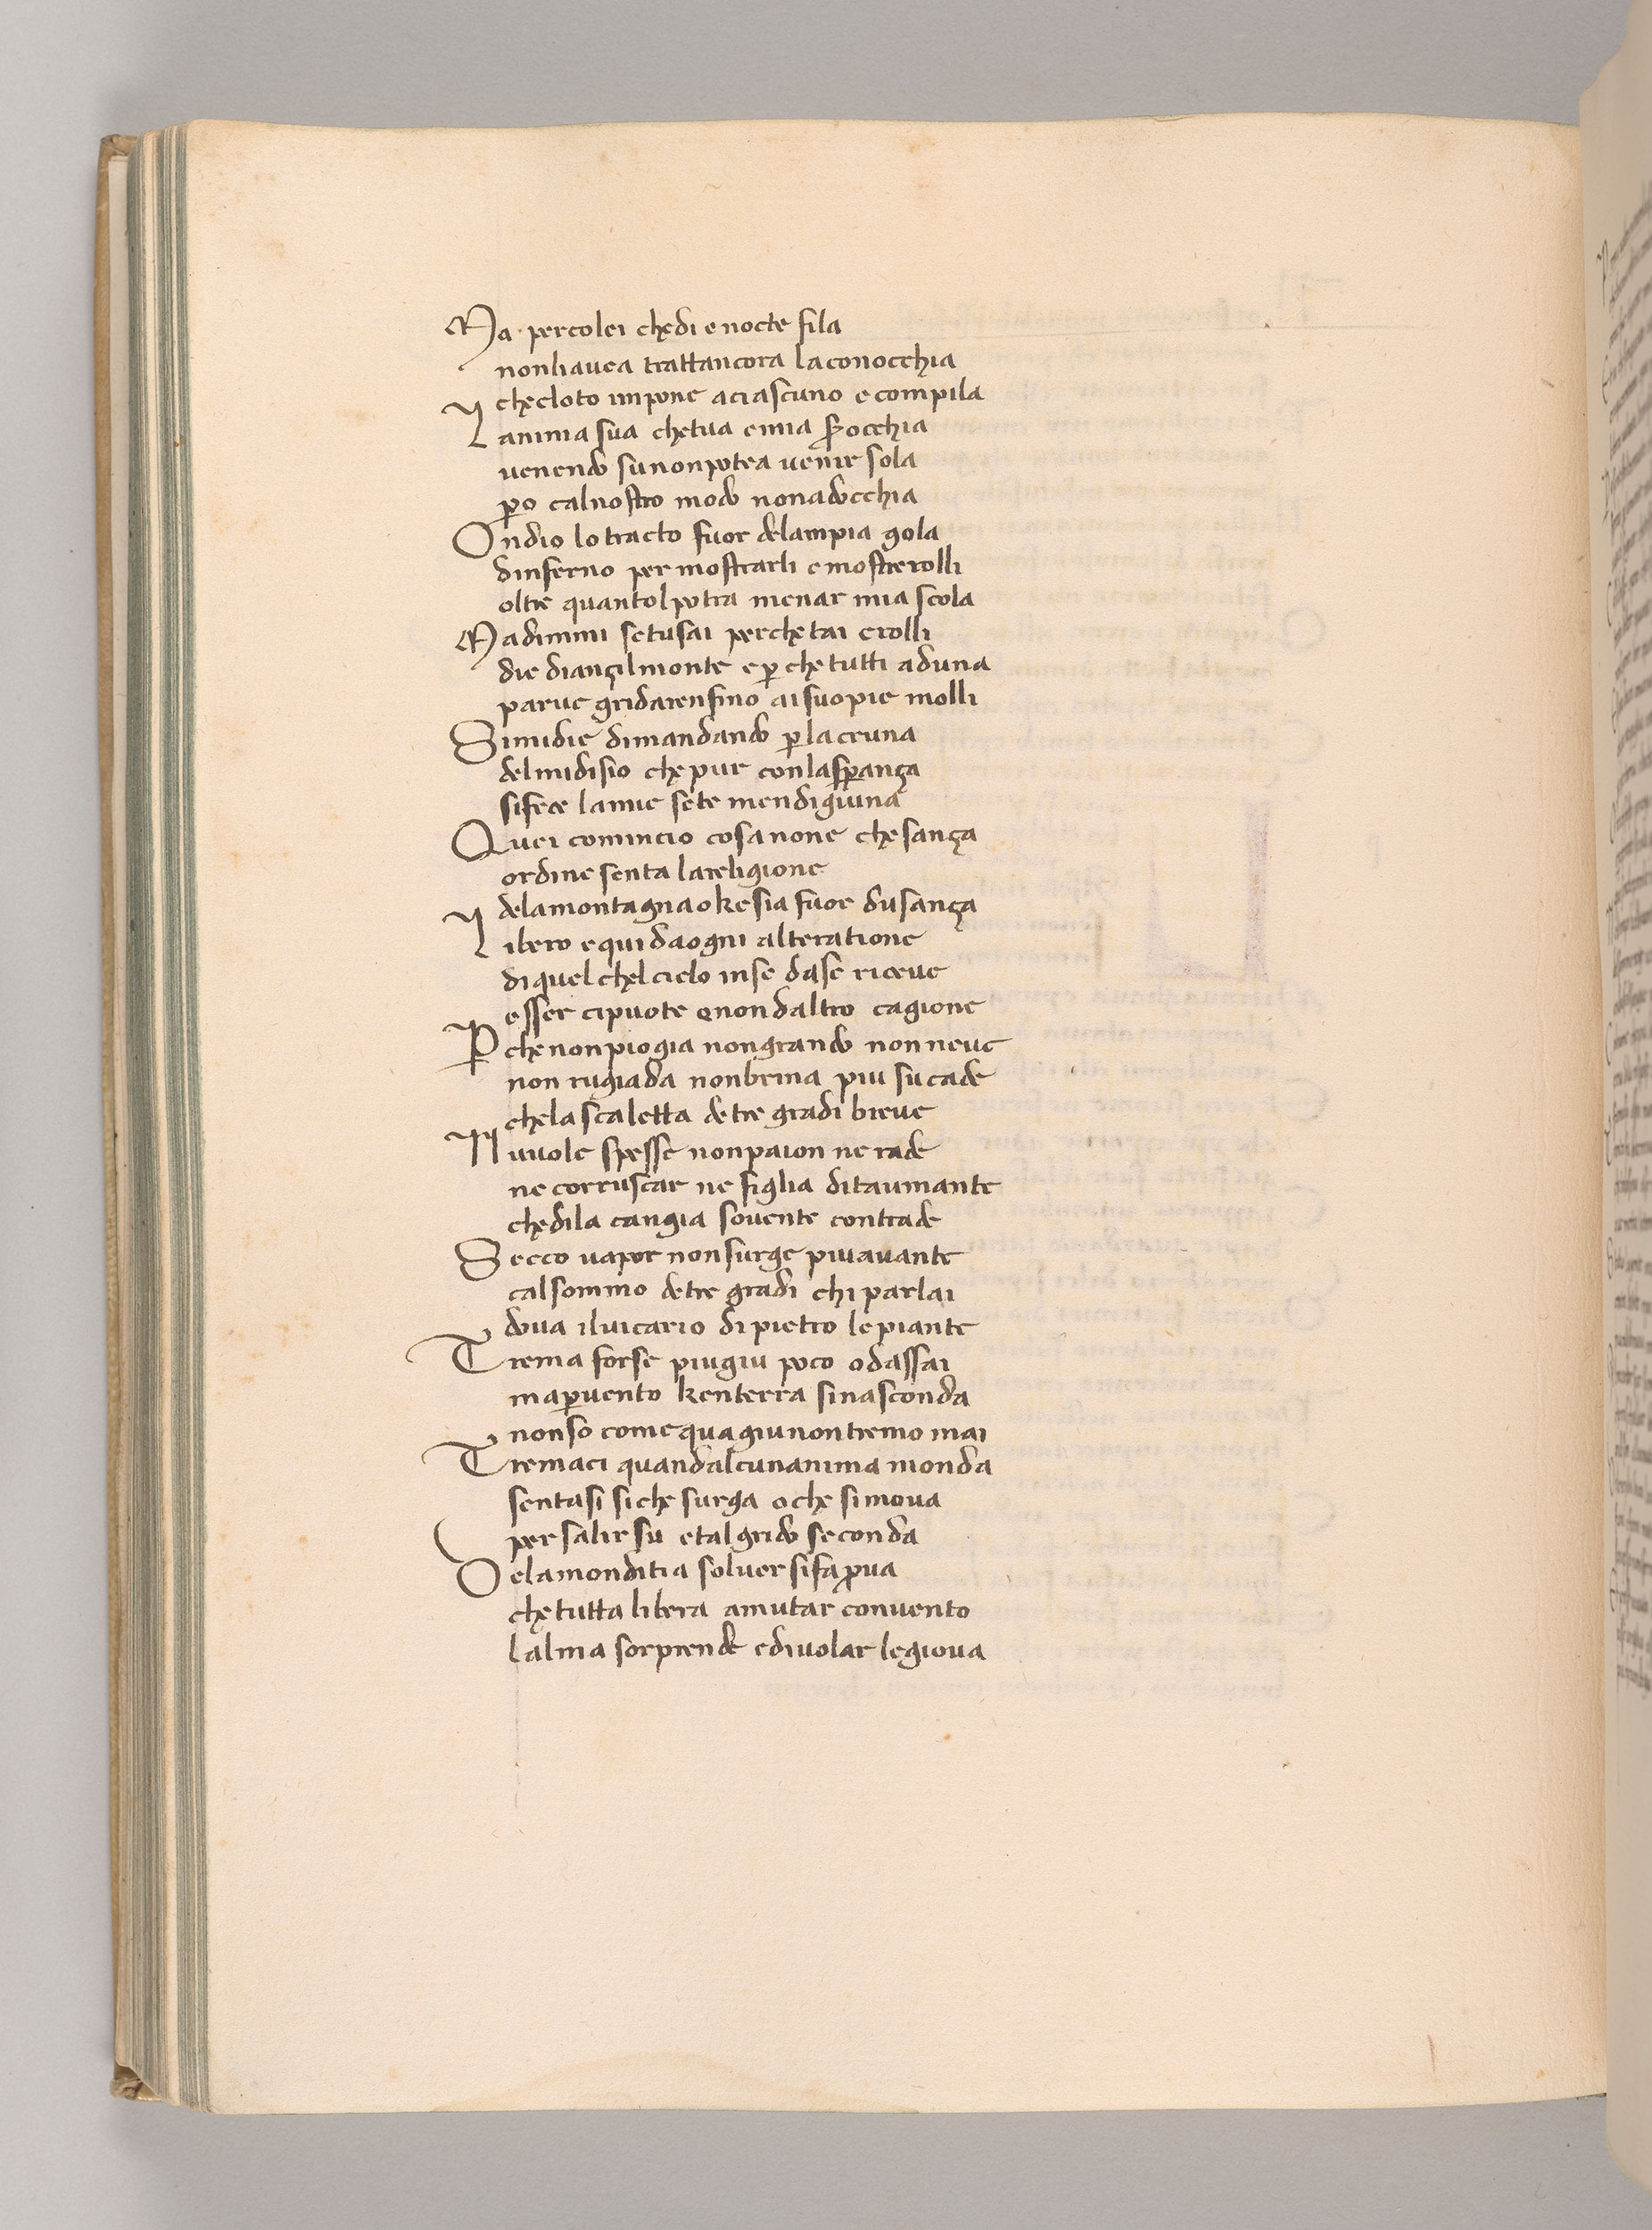 Ma percolei chędi e nocte fila
nonhauea trattancora laconocchia
chęcloto impone aciascuno e compila
Lanima sua chętua emia srocchia
uenendo sunonpotea uenir sola
ꝑo calnostro modo nonadocchia
Ondio lo tracto fuor delampia gola
dinferno per mostrarli e mostrerolli
oltre quantolpotra menar mia scola
Madimmi setusai perchę tai crolli
die diançilmonte e ꝑ chę tutti aduna
parue gridarensino aisuopie molli
Simidie dimandando ꝑ lacruna
delmidisio chę pur conlasꝑança
sifece lamie sete mendigiuna
Quei comincio cosanone chęsança
ordine senta lareligione
delamontagna okesia fuor dusança
Libero equi daogni alteratione
diquel chęlcielo inse dase riceue
esser cipuote enondaltro cagione
Ꝑchę nonpiogia nongrando nonneue
non rugiada nonbrina piu sucade
chęla scaletta detre gradi breue
Nuuole spesse nonpaion ne rade
ne corruscar ne figlia ditaumante
chędila cangia souente contrade
Secco uapor nonsurge piuauante
calsommo detre gradi chi parlai
doua iluicario di pietro lepiante
Trema forse piugiu poco odassai
maꝑuento kenterra sinasconda
nonso come quagiunontremo mai
Tremaci quandalcunanima monda
sentasi sichę surga ochę simoua
per salir su etal grido seconda
Delamonditia soluer sifa ꝓua
chę tutta libera amutar conuento
lalma sorprende edi uolar legioua